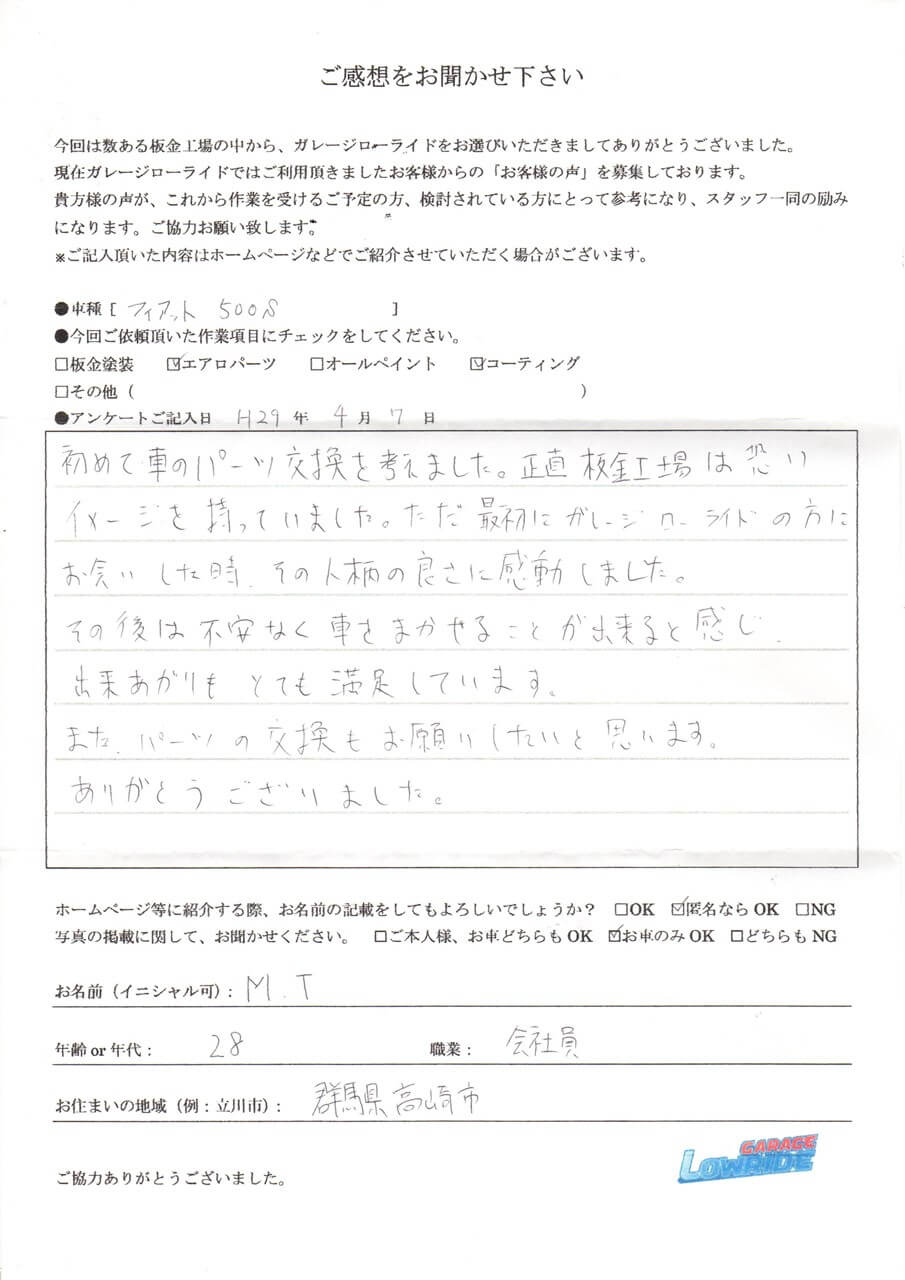 ご感想をお聞かせ下さい
今回は数ある板金工場の中から、ガレージローライドをお選びいただきましてありがとうございました。
現在ガレージローライドではご利用頂きましたお客様からの「お客様の声」を募集しております。
貴方様の声が、これから作業を受けるご予定の方、検討されている方にとって参考になり、スタッフ一同の励み
になります。ご協力お願い致します。
※ご記入頂いた内容はホームページなどでご紹介させていただく場合がございます。
●車種 [ フィアット 500S ]
●今回ご依頼頂いた作業項目にチェックをしてください。
□板金塗装 ☑エアロパーツ □オールペイント ☑コーティング
□その他 ( )
●アンケートご記入日 H29 年 4 月 7 日
初めて車のパーツ交換を考えました。正直 板金工場は恐い
イメージを持っていました。ただ最初にガレージローライドの方に
お会いした時、その人柄の良さに感動しました。
その後は不安なく車をまかせることが出来ると感じ、
出来あがりもとても満足しています。
また、パーツの交換もお願いしたいと思います。
ありがとうございました。
ホームページ等に紹介する際、お名前の記載をしてもよろしいでしょうか？ □OK ☑匿名ならOK □NG
写真の掲載に関して、お聞かせください。 □ご本人様、お車どちらもOK ☑お車のみOK □どちらもNG
お名前（イニシャル可）: M.T
年齢or年代： 28 職業： 会社員
お住まいの地域（例：立川市）: 群馬県高崎市
GARAGE
LOWRIDE
ご協力ありがとうございました。